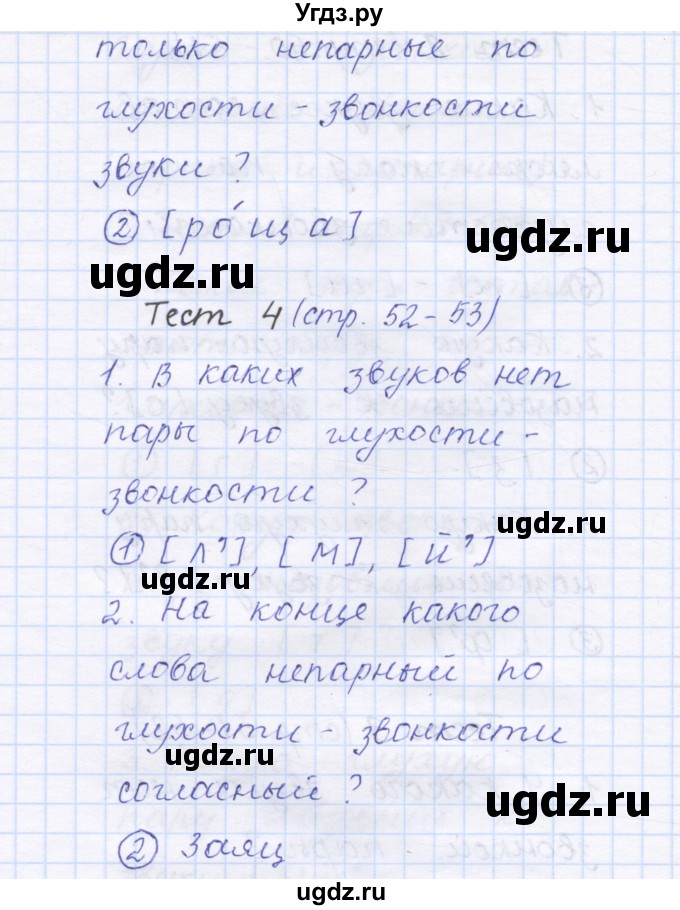 Угдз.ру
только непарные по
глухости - звонкости
звуки?
② [ро́ща]
ugdz.ru
ugdz.ru
Тест 4 (стр. 52-53)
1. В каких звуков нет
пары по глухости -
звонкости?
ugdz.ru
① [л’], [м], [й’]
ugdz.ru
2. На конце какого
слова непарный по
глухости - звонкости
ugdz.ru
согласный?
ugdz.ru
② Заяц
ugdz.ru